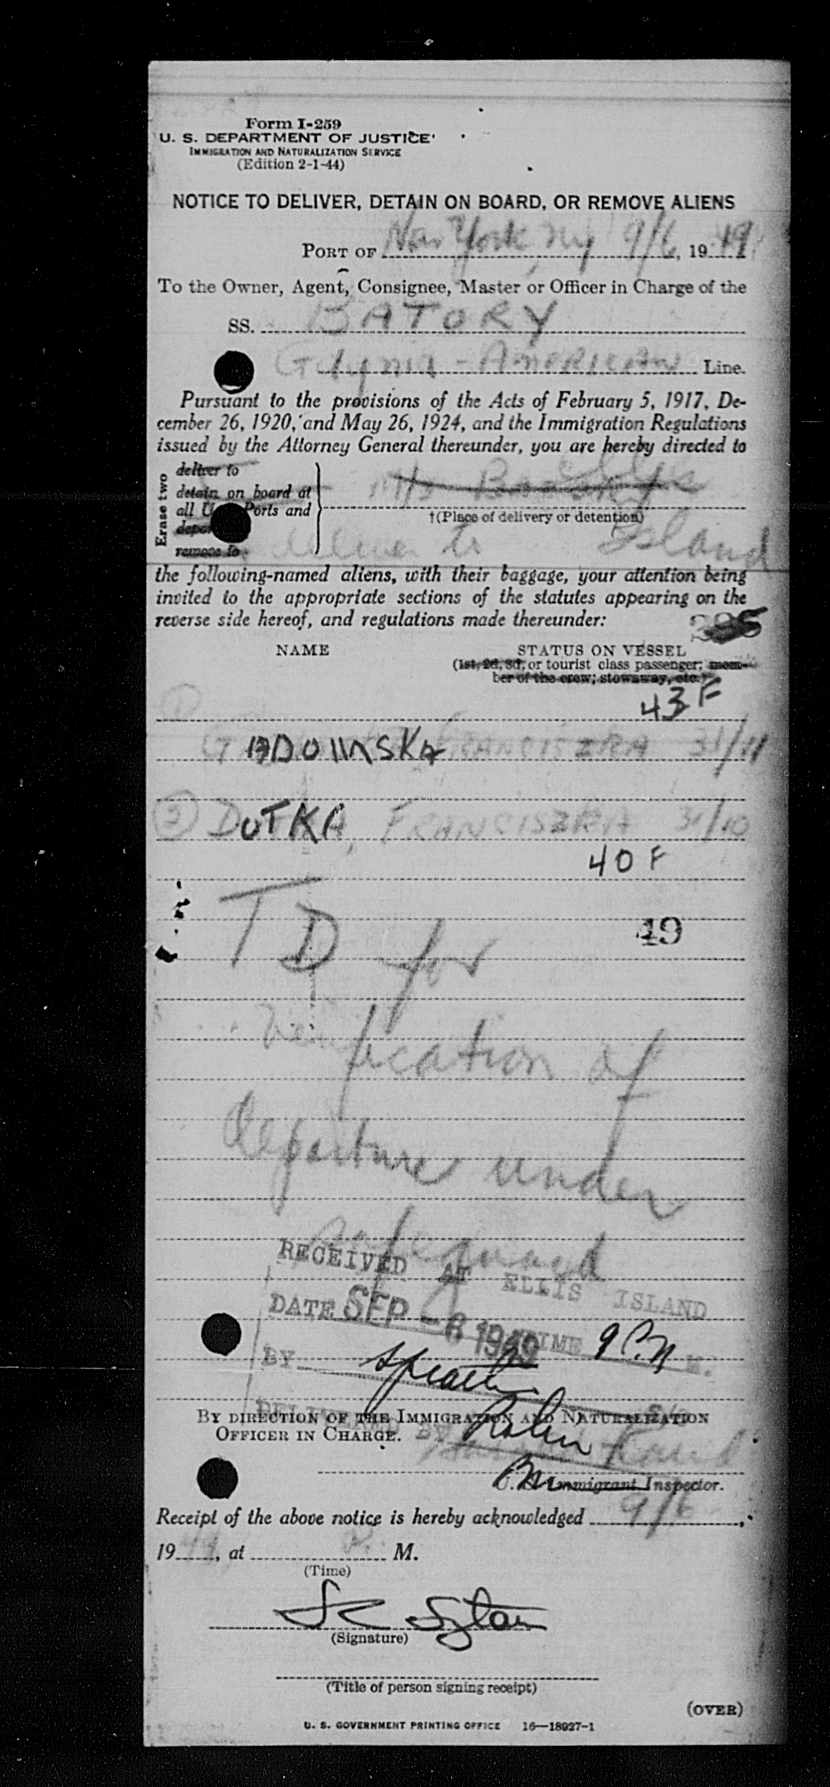 Form I-259
U. S. DEPARTMENT OF JUSTICE
IMMIGRATION AND NATURALIZATION SERVICE
(Edition 2-1-44)
NOTICE TO DELIVER, DETAIN ON BOARD, OR REMOVE ALIENS
PORT OF New York, NY 9/6, 1949
To the Owner, Agent, Consignee, Master or Officer in Charge of the
SS. BATORY
Gdynia - AMERICAN Line.
Pursuant to the provisions of the Acts of February 5, 1917, De-
cember 26, 1920, and May 26, 1924, and the Immigration Regulations
issued by the Attorney General thereunder, you are hereby directed to
Erase two
deliver to
detain on board at
all Ports and
remove to
M/s Batory Ellis
†(Place of delivery or detention)
deliver to Island
the following-named aliens, with their baggage, your attention being
invited to the appropriate sections of the statutes appearing on the
reverse side hereof, and regulations made thereunder:
NAME
STATUS ON VESSEL
(1st, 2d, 3d, or tourist class passenger; mem-
ber of the crew; stowaway, etc.)
43 F
① 
FRANCISZKA 31/11
② DUTKA, FRANCISZKA 31/10
40 F
TD for
49
verification of
departure under
safeguard
RECEIVED AT ELLIS ISLAND
DATE SEP - 6 1949 TIME 9 P.M.
BY
DELIVERED BY
BY DIRECTION OF THE IMMIGRATION AND NATURALIZATION
OFFICER IN CHARGE.
Immigrant Inspector.
Receipt of the above notice is hereby acknowledged 9/6,
1949, at M.
(Time)
(Signature)
(Title of person signing receipt)
(OVER)
U. S. GOVERNMENT PRINTING OFFICE 16—18927-1